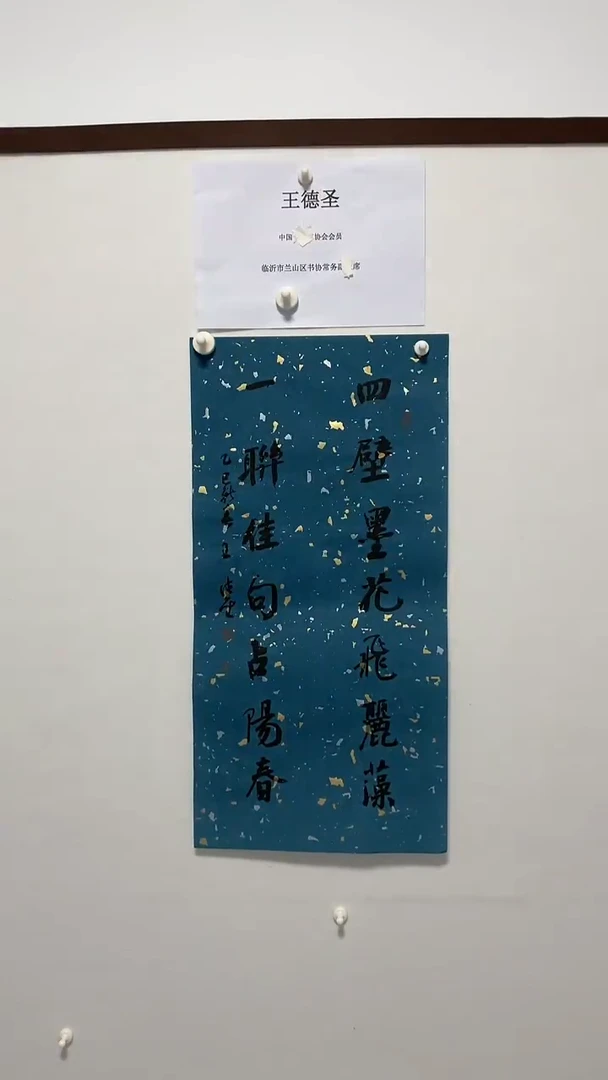 王德圣
中国 协会会员
临沂市兰山区书协常务副 席
四壁墨花飛麗藻
一聯佳句占陽春
乙巳 王德聖